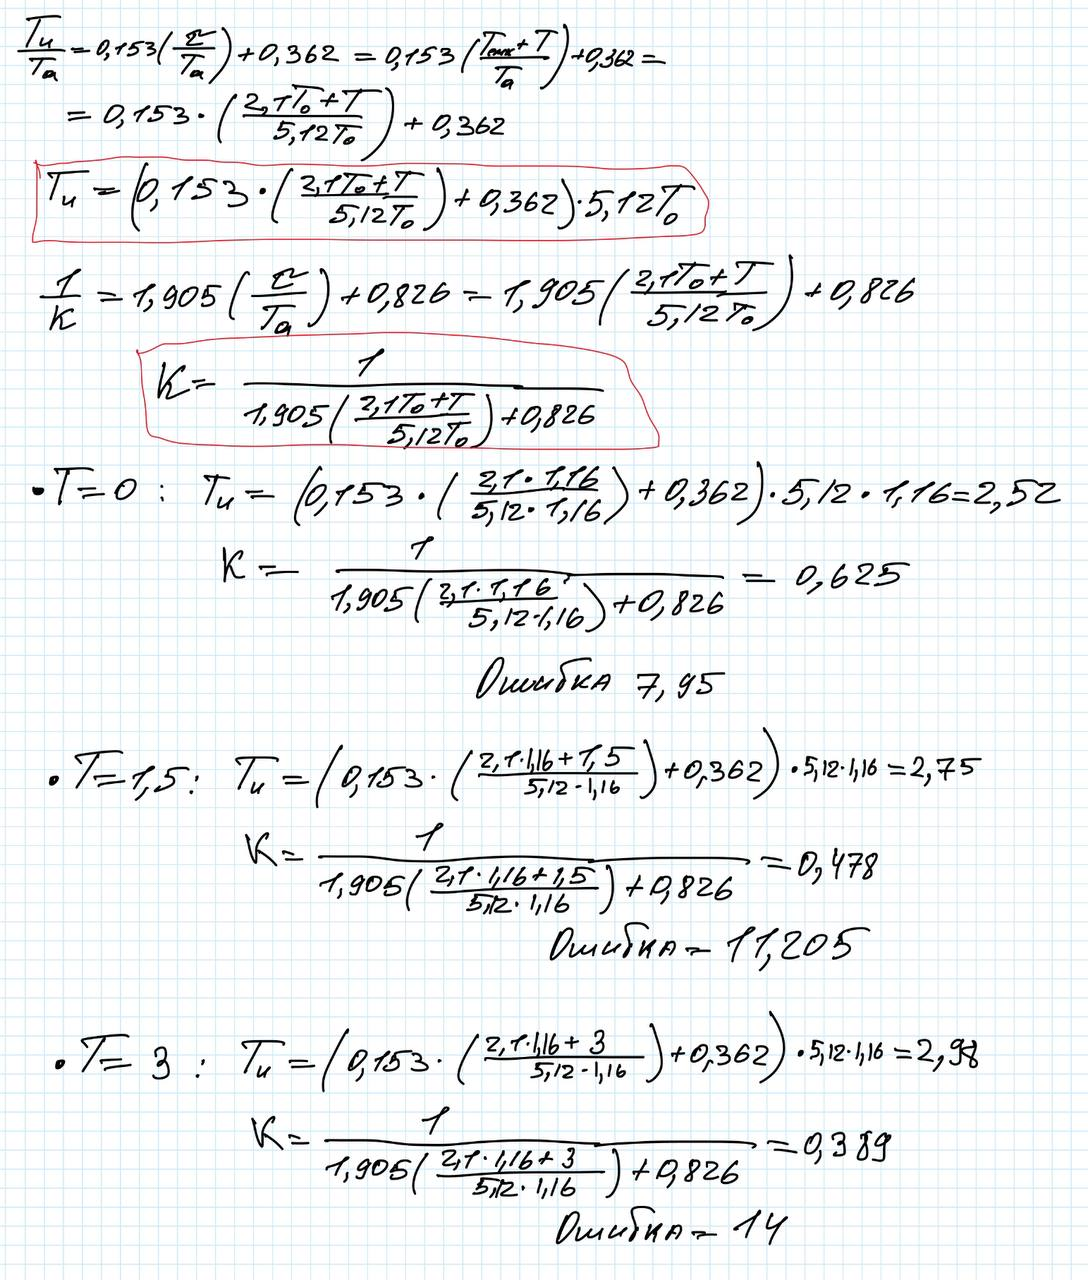 Tи/Ta = 0,153(τ/Ta) + 0,362 = 0,153((Tемк + T)/Ta) + 0,362 =
= 0,153 · ((2,1T₀ + T)/5,12T₀) + 0,362
Tи = (0,153 · ((2,1T₀ + T)/5,12T₀) + 0,362) · 5,12T₀
1/K = 1,905(τ/Ta) + 0,826 = 1,905((2,1T₀ + T)/5,12T₀) + 0,826
K = 1/(1,905((2,1T₀ + T)/5,12T₀) + 0,826)
• T = 0 : Tи = (0,153 · ((2,1 · 1,16)/(5,12 · 1,16)) + 0,362) · 5,12 · 1,16 = 2,52
K = 1/(1,905((2,1 · 1,16)/(5,12 · 1,16)) + 0,826) = 0,625
Ошибка 7,95
• T = 1,5 : Tи = (0,153 · ((2,1 · 1,16 + 1,5)/(5,12 · 1,16)) + 0,362) · 5,12 · 1,16 = 2,75
K = 1/(1,905((2,1 · 1,16 + 1,5)/(5,12 · 1,16)) + 0,826) = 0,478
Ошибка = 11,205
• T = 3 : Tи = (0,153 · ((2,1 · 1,16 + 3)/(5,12 · 1,16)) + 0,362) · 5,12 · 1,16 = 2,98
K = 1/(1,905((2,1 · 1,16 + 3)/(5,12 · 1,16)) + 0,826) = 0,389
Ошибка = 14